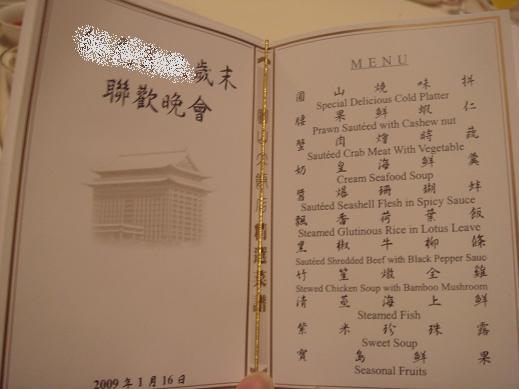 歲末
聯歡晚會
2009年1月16日
MENU
圓山燒味拼
Special Delicious Cold Platter
腰果鮮蝦仁
Prawn Sautéed with Cashew nut
蟹肉燴時蔬
Sautéed Crab Meat With Vegetable
奶皇海鮮羹
Cream Seafood Soup
醬爆珊瑚蚌
Sautéed Seashell Flesh in Spicy Sauce
飄香荷葉飯
Steamed Glutinous Rice in Lotus Leave
黑椒牛柳條
Sautéed Shredded Beef with Black Pepper Sauc
竹笙燉全雞
Stewed Chicken Soup with Bamboo Mushroom
清蒸海上鮮
Steamed Fish
紫米珍珠露
Sweet Soup
寶島鮮果
Seasonal Fruits